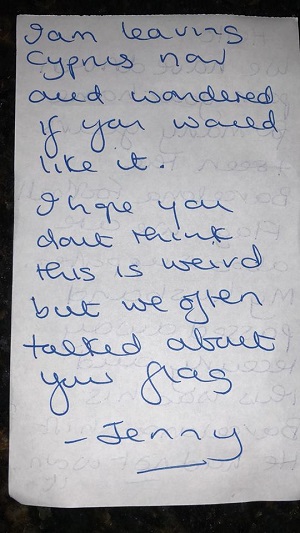 I am leaving
Cyprus now
and wondered
if you would
like it.
I hope you
dont think
this is weird
but we often
talked about
your flag
- Jenny